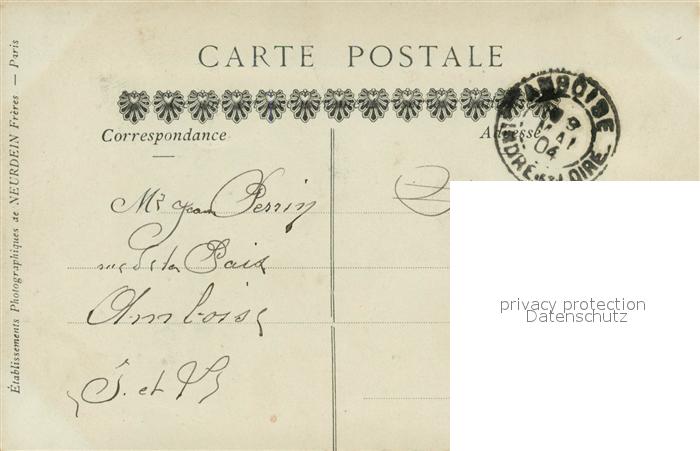 CARTE POSTALE
Correspondance
Adresse
AMBOISE
9
MAI
04
INDRE-ET-LOIRE
Mr Jean Perrin
rue de la Paix
Amboise
I. et L
Établissements Photographiques de NEURDEIN Frères — Paris
privacy protection
Datenschutz